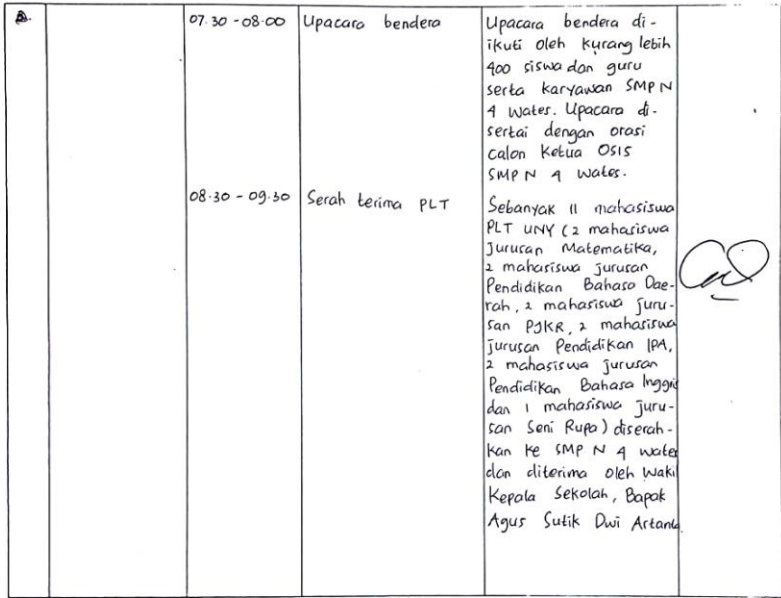 07.30 - 08.00
Upacara bendera
Upacara bendera di-
ikuti oleh kurang lebih
400 siswa dan guru
serta karyawan SMP N
4 Wates. Upacara di-
sertai dengan orasi
calon Ketua OSIS
SMP N 4 Wates.
08.30 - 09.30
Serah terima PLT
Sebanyak 11 mahasiswa
PLT UNY (2 mahasiswa
jurusan Matematika,
2 mahasiswa jurusan
Pendidikan Bahasa Dae-
rah, 2 mahasiswa juru-
san PJKR, 2 mahasiswa
jurusan Pendidikan IPA,
2 mahasiswa jurusan
Pendidikan Bahasa Inggris
dan 1 mahasiswa juru-
san Seni Rupa) diserah-
kan ke SMP N 4 Wates
dan diterima oleh Wakil
Kepala Sekolah, Bapak
Agus Sutik Dwi